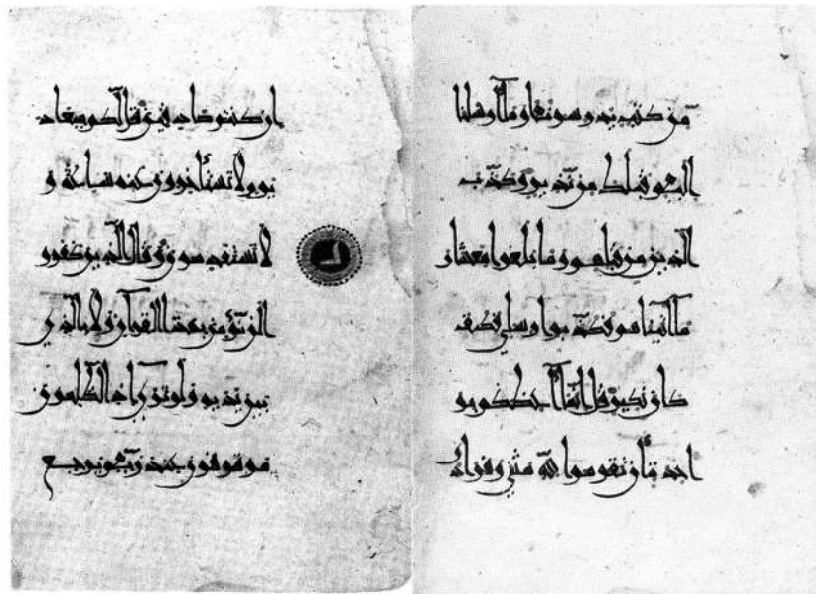 من كتب يدرسونها وما أرسلنا
إليهم قبلك من نذير وكذب
الذين من قبلهم وما بلغوا معشار
ما آتيناهم فكذبوا رسلي فكيف
كان نكير قل إنما أعظكم بو
احدة أن تقوموا لله مثنى وفرادى
ان كنتم صادقين قل لكم ميعاد
يوم لا تستأخرون عنه ساعة و
لا تستقدمون وقال الذين كفروا
لن نؤمن بهذا القرآن ولا بالذي
بين يديه ولو ترى إذ الظالمون
موقوفون عند ربهم يرجع